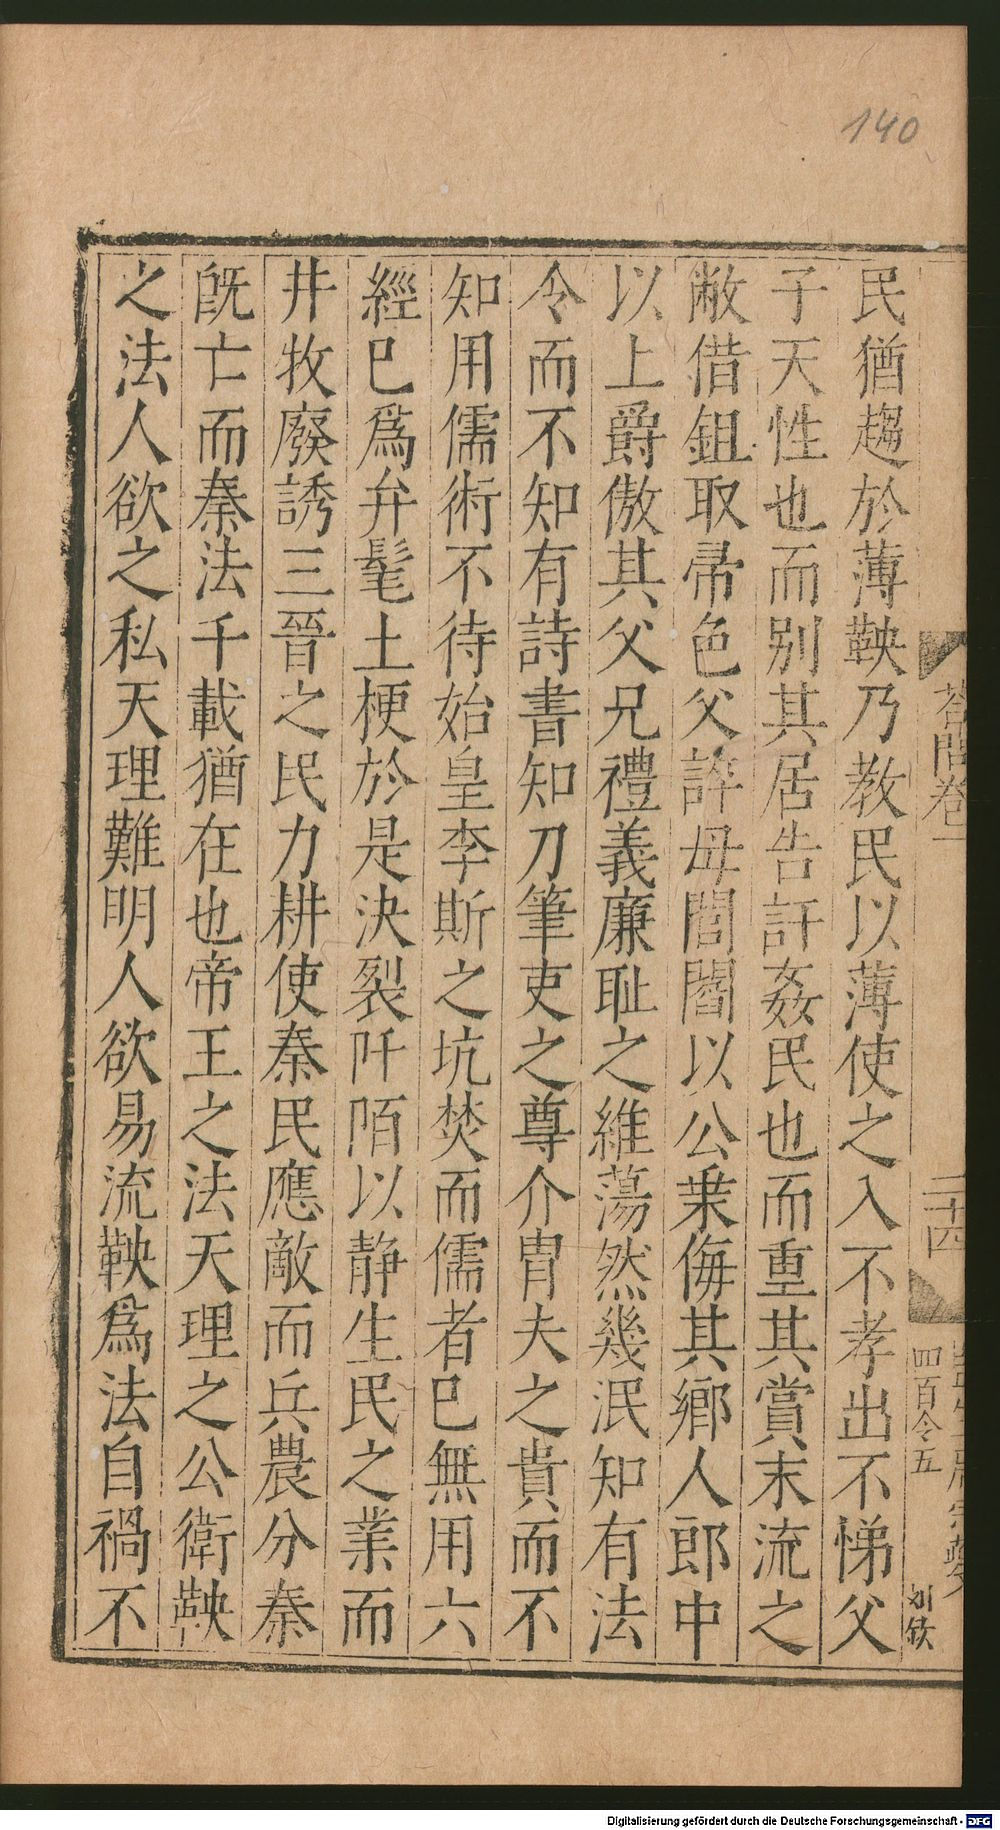 140
民猶趨於薄鞅乃教民以薄使之入不孝出不悌父
子天性也而别其居告訐姦民也而重其賞末流之
敝借鉏取帚色父誶母閭閻以公乗侮其鄉人郎中
以上爵傲其父兄禮義廉耻之維蕩然幾泯知有法
令而不知有詩書知刀筆吏之尊介胄夫之貴而不
知用儒術不待始皇李斯之坑焚而儒者已無用六
經已爲弁髦土梗於是決裂阡陌以静生民之業而
井牧廢誘三晉之民力耕使秦民應敵而兵農分秦
旣亡而秦法千載猶在也帝王之法天理之公衛鞅
之法人欲之私天理難明人欲易流鞅爲法自禍不
荅問卷一
二十四
四百令五
刘欽
Digitalisierung gefördert durch die Deutsche Forschungsgemeinschaft - DFG